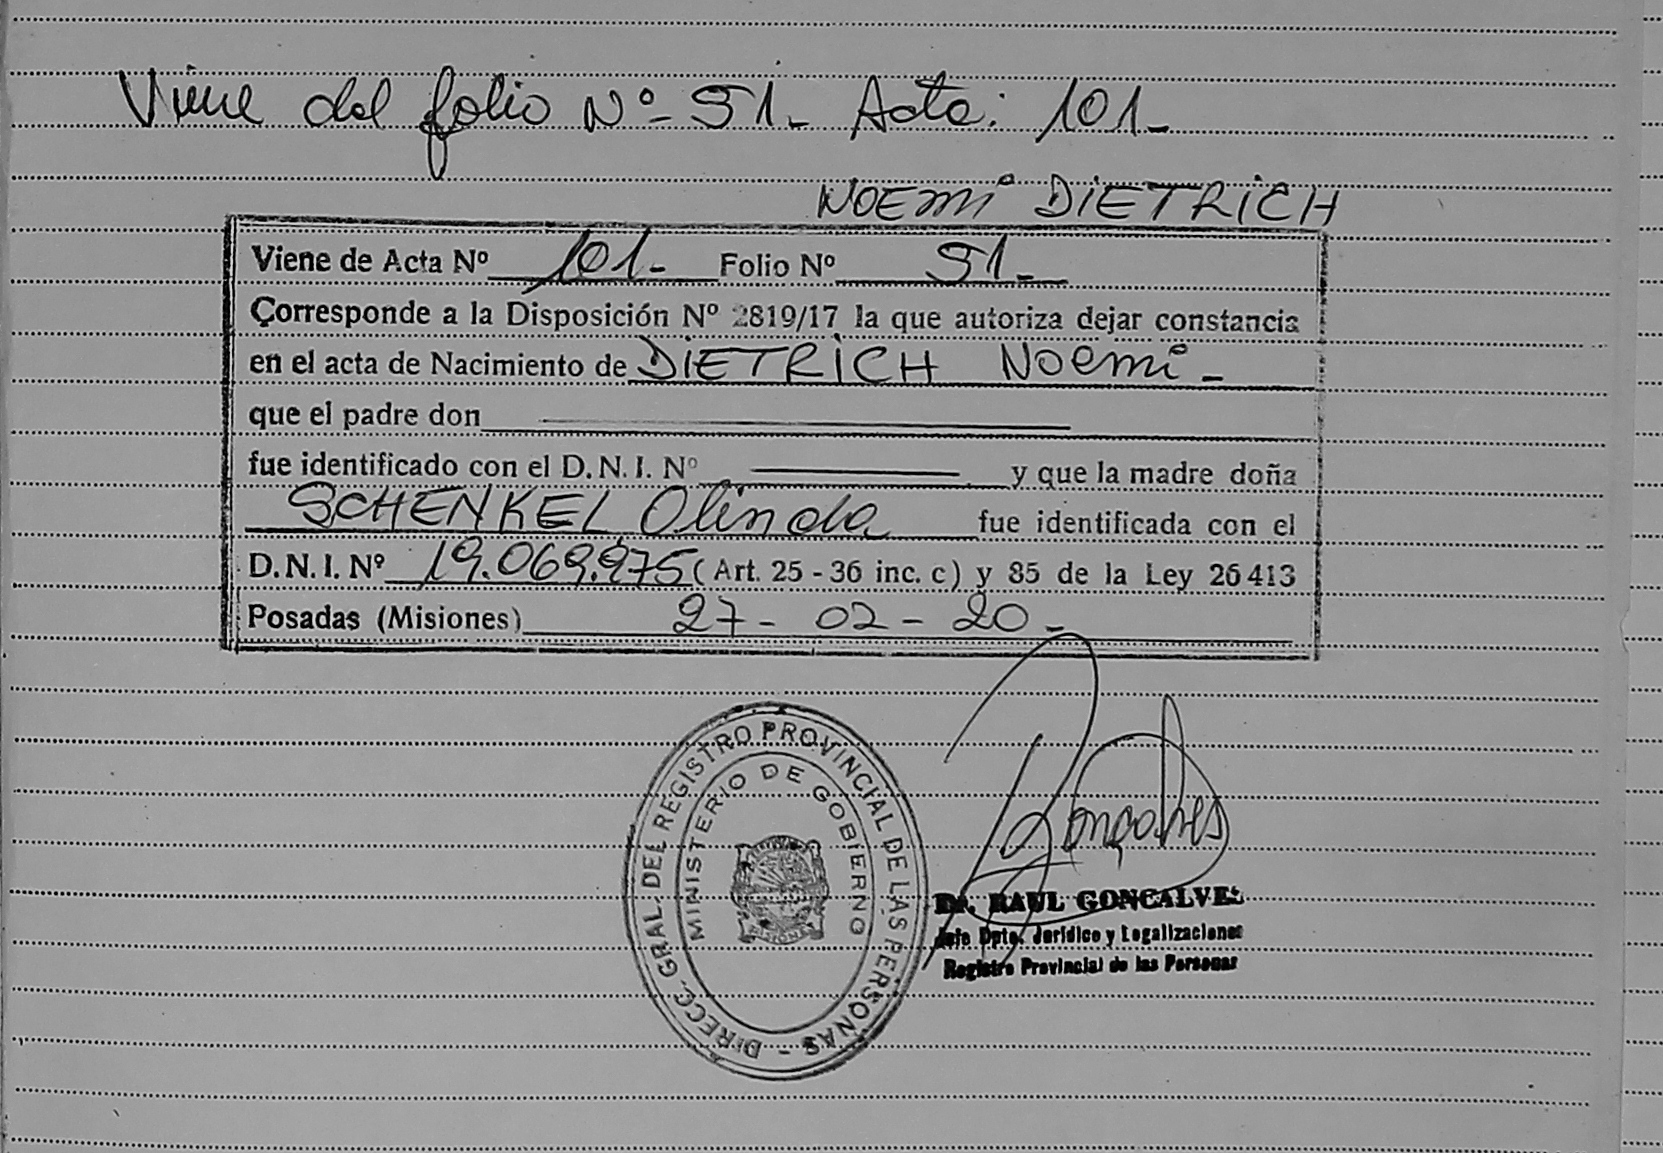 Viene del folio Nº 51. Acta: 101-
NOEMI DIETRICH
Viene de Acta Nº 101- Folio Nº 51-
Corresponde a la Disposición Nº 2819/17 la que autoriza dejar constancia
en el acta de Nacimiento de DIETRICH Noemi -
que el padre don
fue identificado con el D.N.I. Nº y que la madre doña
SCHENKEL Olinda fue identificada con el
D.N.I. Nº 19.069.975 (Art. 25 - 36 inc. c) y 85 de la Ley 26413
Posadas (Misiones) 27- 02 - 20 -
DIRECC. GRAL. DEL REGISTRO PROVINCIAL DE LAS PERSONAS -
MINISTERIO DE GOBIERNO
MISIONES
Gonçalves
Dr. RAUL GONCALVES
Jefe Dpto. Jurídico y Legalizaciones
Registro Provincial de las Personas